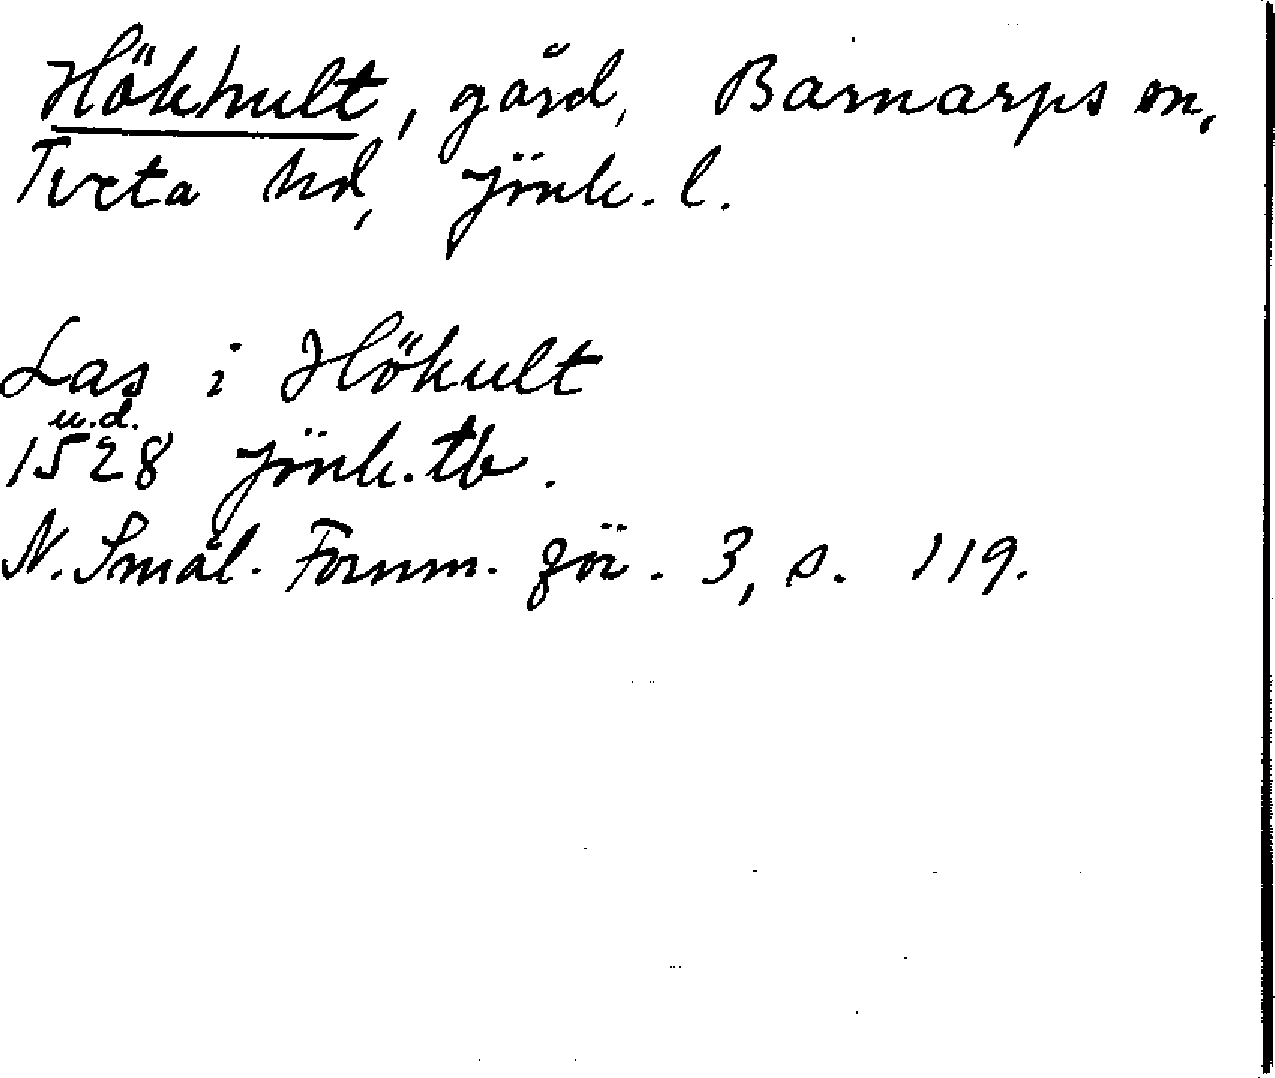 Hökhult, gård, Barnarps sn,
Tveta hd, Jönk. l.
Las i Hökult
u.d.
1528 Jönk. tb.
N. Smål. Fornm.för. 3, s. 119.